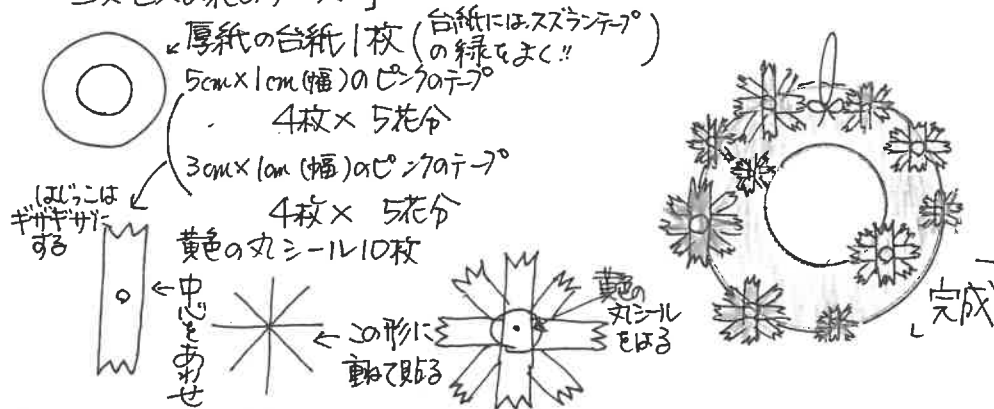 厚紙の台紙1枚(台紙にはスズランテープ
の緑をまく!!)
5cm×1cm(幅)のピンクのテープ
4枚× 5花分
3cm×1cm(幅)のピンクのテープ
4枚× 5花分
黄色の丸シール10枚
はじっこは
ギザギザに
する
←中心をあわせ
←この形に
重ねて貼る
黄色の
丸シール
をはる
完成